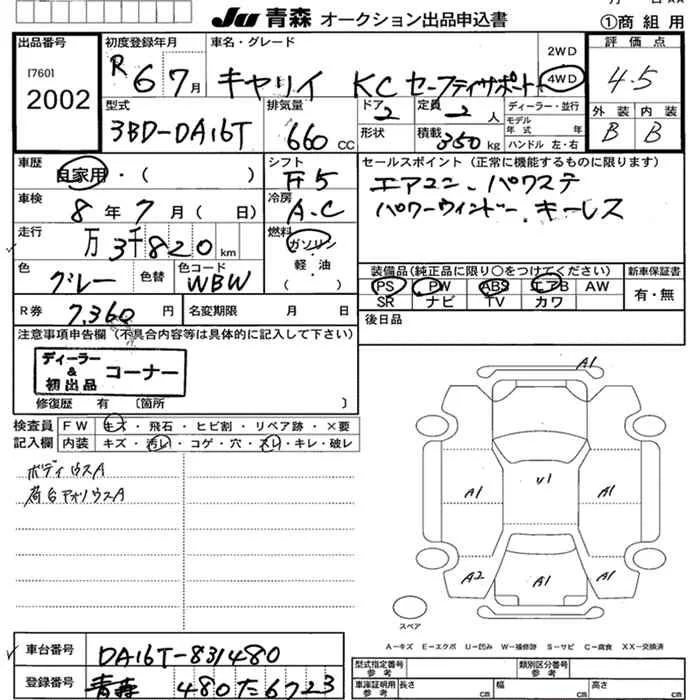 Ju 青森 オークション出品申込書
①商組用
出品番号
[760]
2002
初度登録年月
R 6 7月
車名・グレード
キャリイ KC セーフティサポート
2WD
4WD
評価点
4.5
外装 内装
B B
型式
3BD-DA16T
排気量
660 CC
ドア
2
定員
2 人
ディーラー・並行
モデル年式 年式
形状
積載
350 kg
ハンドル 左・右
車歴
自家用・( )
シフト
F5
セールスポイント(正常に機能するものに限ります)
エアコン、パワステ
パワーウィンドー、キーレス
車検
8年7月(日)
冷房
A.C
走行
万 3千820 km
燃料
ガソリン
軽・油
( )
色
グレー
色替
色コード
WBW
装備品(純正品に限り○をつけてください)
PS PW ABS エアB AW
SR ナビ TV カワ
新車保証書
有・無
R券
7,360 円
名変期限 月 日
後日品
注意事項申告欄(不具合内容等は具体的に記入して下さい)
ディーラー & 初出品 コーナー
修復歴 有 〔箇所 〕
検査員記入欄
FW キズ・飛石・ヒビ割・リペア跡・×要
内装 キズ・汚レ・コゲ・穴・スレ・キレ・破レ
ボディウスA
荷台アオリウスA
A1
U1
A1
A1
A2
A1
A1
スペア
A-キズ E-エクボ U-凹み W-補修跡 S-サビ C-腐食 XX-交換済
車台番号
DA16T-831480
登録番号
青森 480 た 6723
型式指定番号 参考
類別区分番号 参考
車庫証明用 参考
長さ cm
幅 cm
高さ cm